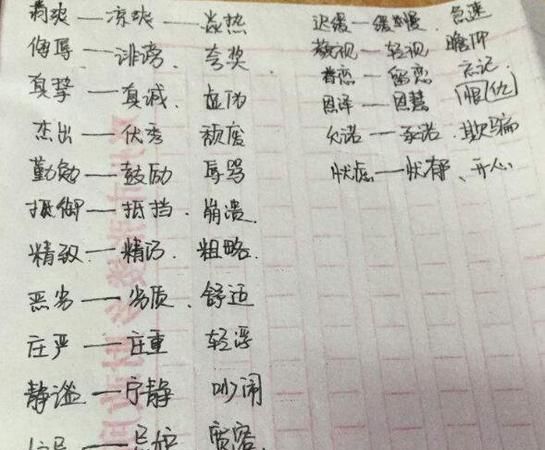 清爽——凉爽——炎热
侮辱——诽谤、夸奖
真挚——真诚、虚伪
杰出——优秀 颓废
勤勉——鼓励 辱骂
抵御——抵挡、崩溃
精致——精巧、粗略
恶劣——劣质、舒适
庄严——庄重 轻浮
静谧——宁静 吵闹
——忌妒 宽容
迟缓——缓慢、急速
蔑视——轻视 瞻仰
眷恋——留恋 忘记
恩泽——恩惠 [恨(仇]
允诺——承诺、欺骗
忧虑——忧郁、开心